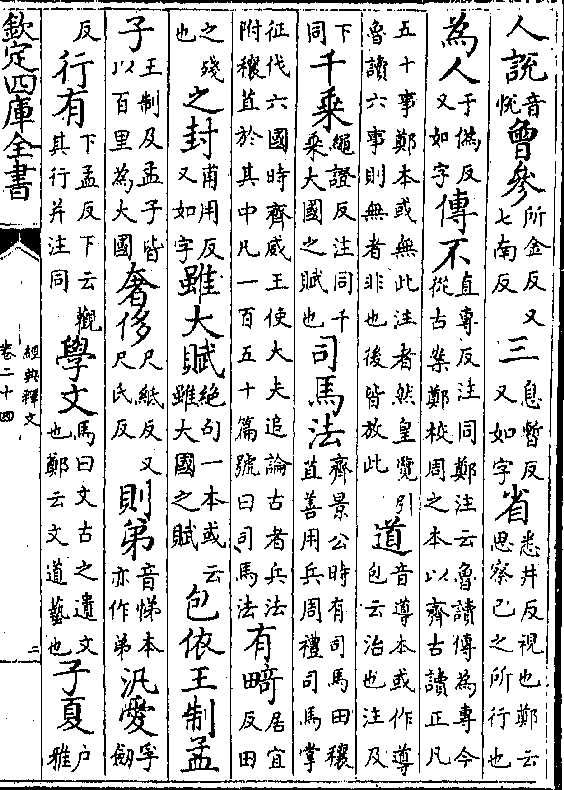 人說音悅曾參所金反又七南反三息暫反又如字省悉井反視也鄭云思察己之所行也
為人于偽反又如字傳不直專反注同鄭注云魯讀傳為專今從古案鄭校周之本以齊古讀正凡
五十事鄭本或無此注者然皇覽引魯讀六事則無者非也後皆放此道音導本或作導包云治也注及
下同千乘繩證反注同千乘大國之賦也司馬法齊景公時有司馬田穰苴善用兵周禮司馬掌
征伐六國時齊威王使大夫追論古者兵法附穰苴於其中凡一百五十篇號曰司馬法有畸居宜反田
之殘也之封甫用反又如字雖大賦絶句一本或云雖大國之賦包依王制孟
子王制及孟子皆以百里為大國奢侈尺紙反又尺氏反則弟音悌本亦作弟汎愛孚劒
反行有下孟反下云觀其行并注同學文馬曰文古之遺文也鄭云文道藝也子夏户雅
欽定四庫全書
經典釋文
卷二十四
二